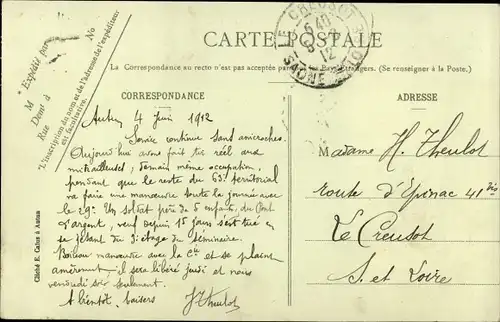 CARTE POSTALE
La Correspondance au recto n'est pas acceptée par Étrangers. (Se renseigner à la Poste.)
Expédié par
M
Demt à
Rue
No
"L'inscription du nom et de l'adresse de l'expéditeur
est facultative."
LE CREUSOT
5 12
SAÔNE-ET-LOIRE
CORRESPONDANCE
Autun 4 Juin 1912
Service continue sans anicroches.
Aujourd'hui avons fait tir réel aux
mitrailleuses, demain même occupation,
pendant que le reste du 63e territorial
va faire une manœuvre toute la journée avec
le 29e. Un soldat père de 5 enfants, du Pont
d'argent, veuf depuis 15 jours s'est tué en
se jetant du 3e étage du séminaire.
manœuvre avec la Cie et se plaint
amèrement, il sera libéré jeudi et nous
vendredi soir seulement.
A bientôt, baisers
J Theulot
ADRESSE
Madame H. Theulot
route d'Epinac 41 bis
Le Creusot
S. et Loire
Cliché E. Calus à Autun